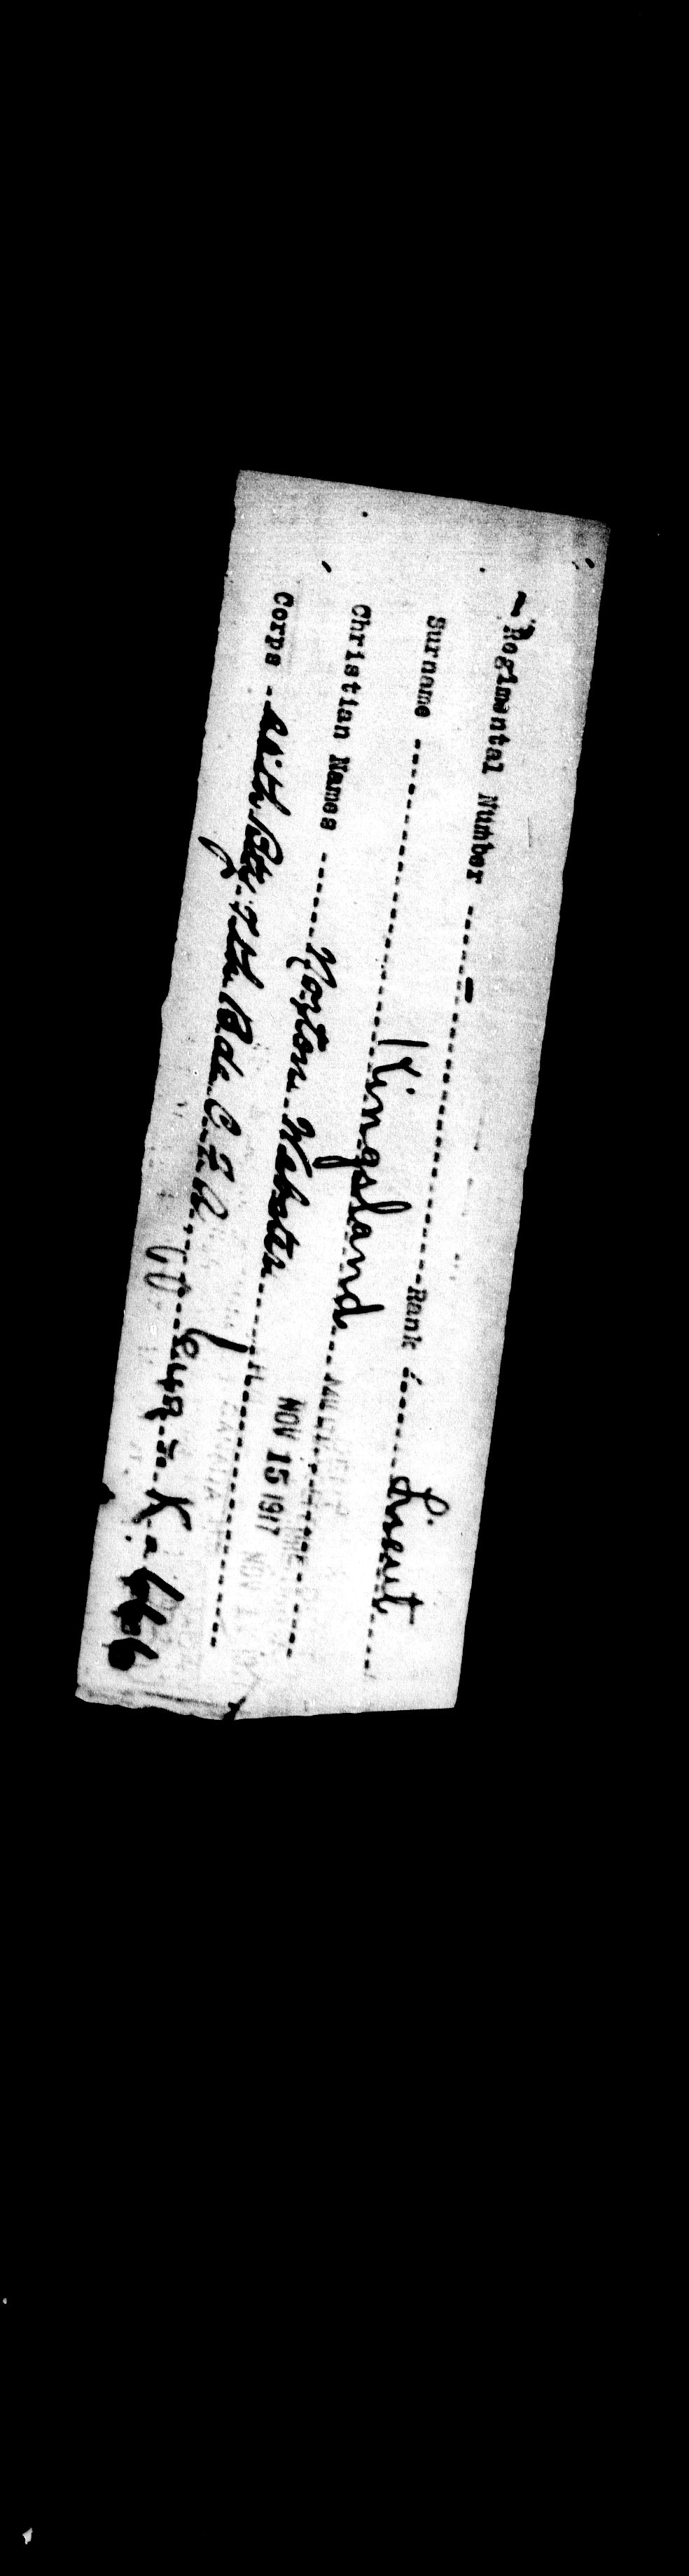 Regimental Number - Rank Lieut
Surname Kingsland
Christian Names Norton Webster
Corps Bty. 7th Bde C.F.A.
NOV 15 1917
K-666